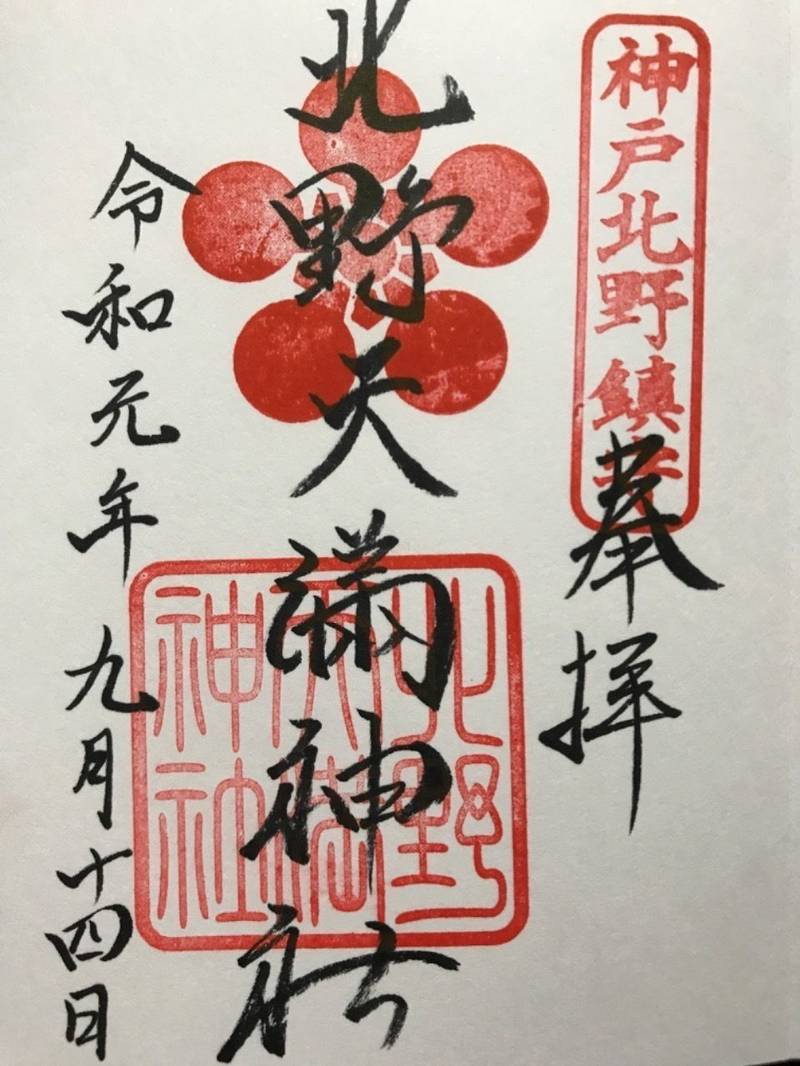 神戸北野鎮
奉拝
北野天満神社
北野
天満
神社
令和元年九月十四日